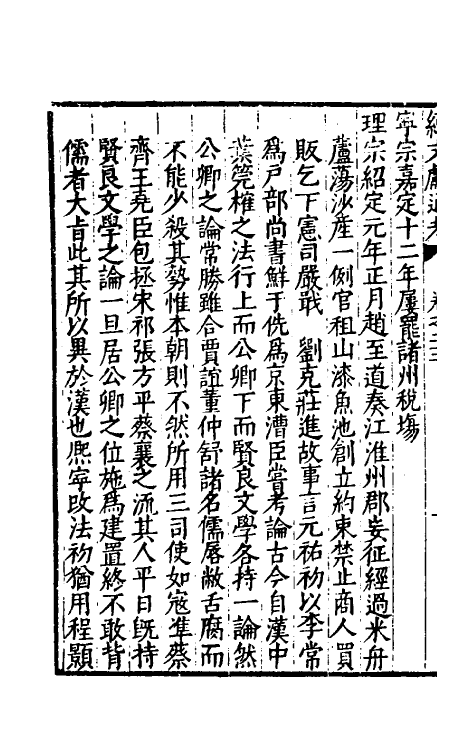 續文獻通考　卷之二三
寧宗嘉定十二年屢罷諸州稅塲
理宗紹定元年正月趙至道奏江淮州郡妄征經過米舟
蘆蕩沙產一例官租山漆魚池創立約束禁止商人買
販乞下憲司嚴戢　劉克莊進故事言元祐初以李常
爲戶部尚書鮮于侁爲京東漕臣嘗考論古今自漢中
葉筦榷之法行上而公卿下而賢良文學各持一論然
公卿之論常勝雖合賈誼董仲舒諸名儒唇敝舌腐而
不能少殺其勢惟本朝則不然所用三司使如寇準蔡
齊王堯臣包拯宋祁張方平蔡襄之流其人平日旣持
賢良文學之論一旦居公卿之位施爲建置終不敢背
儒者大㫖此其所以異於漢也熙寧改法初猶用程顥